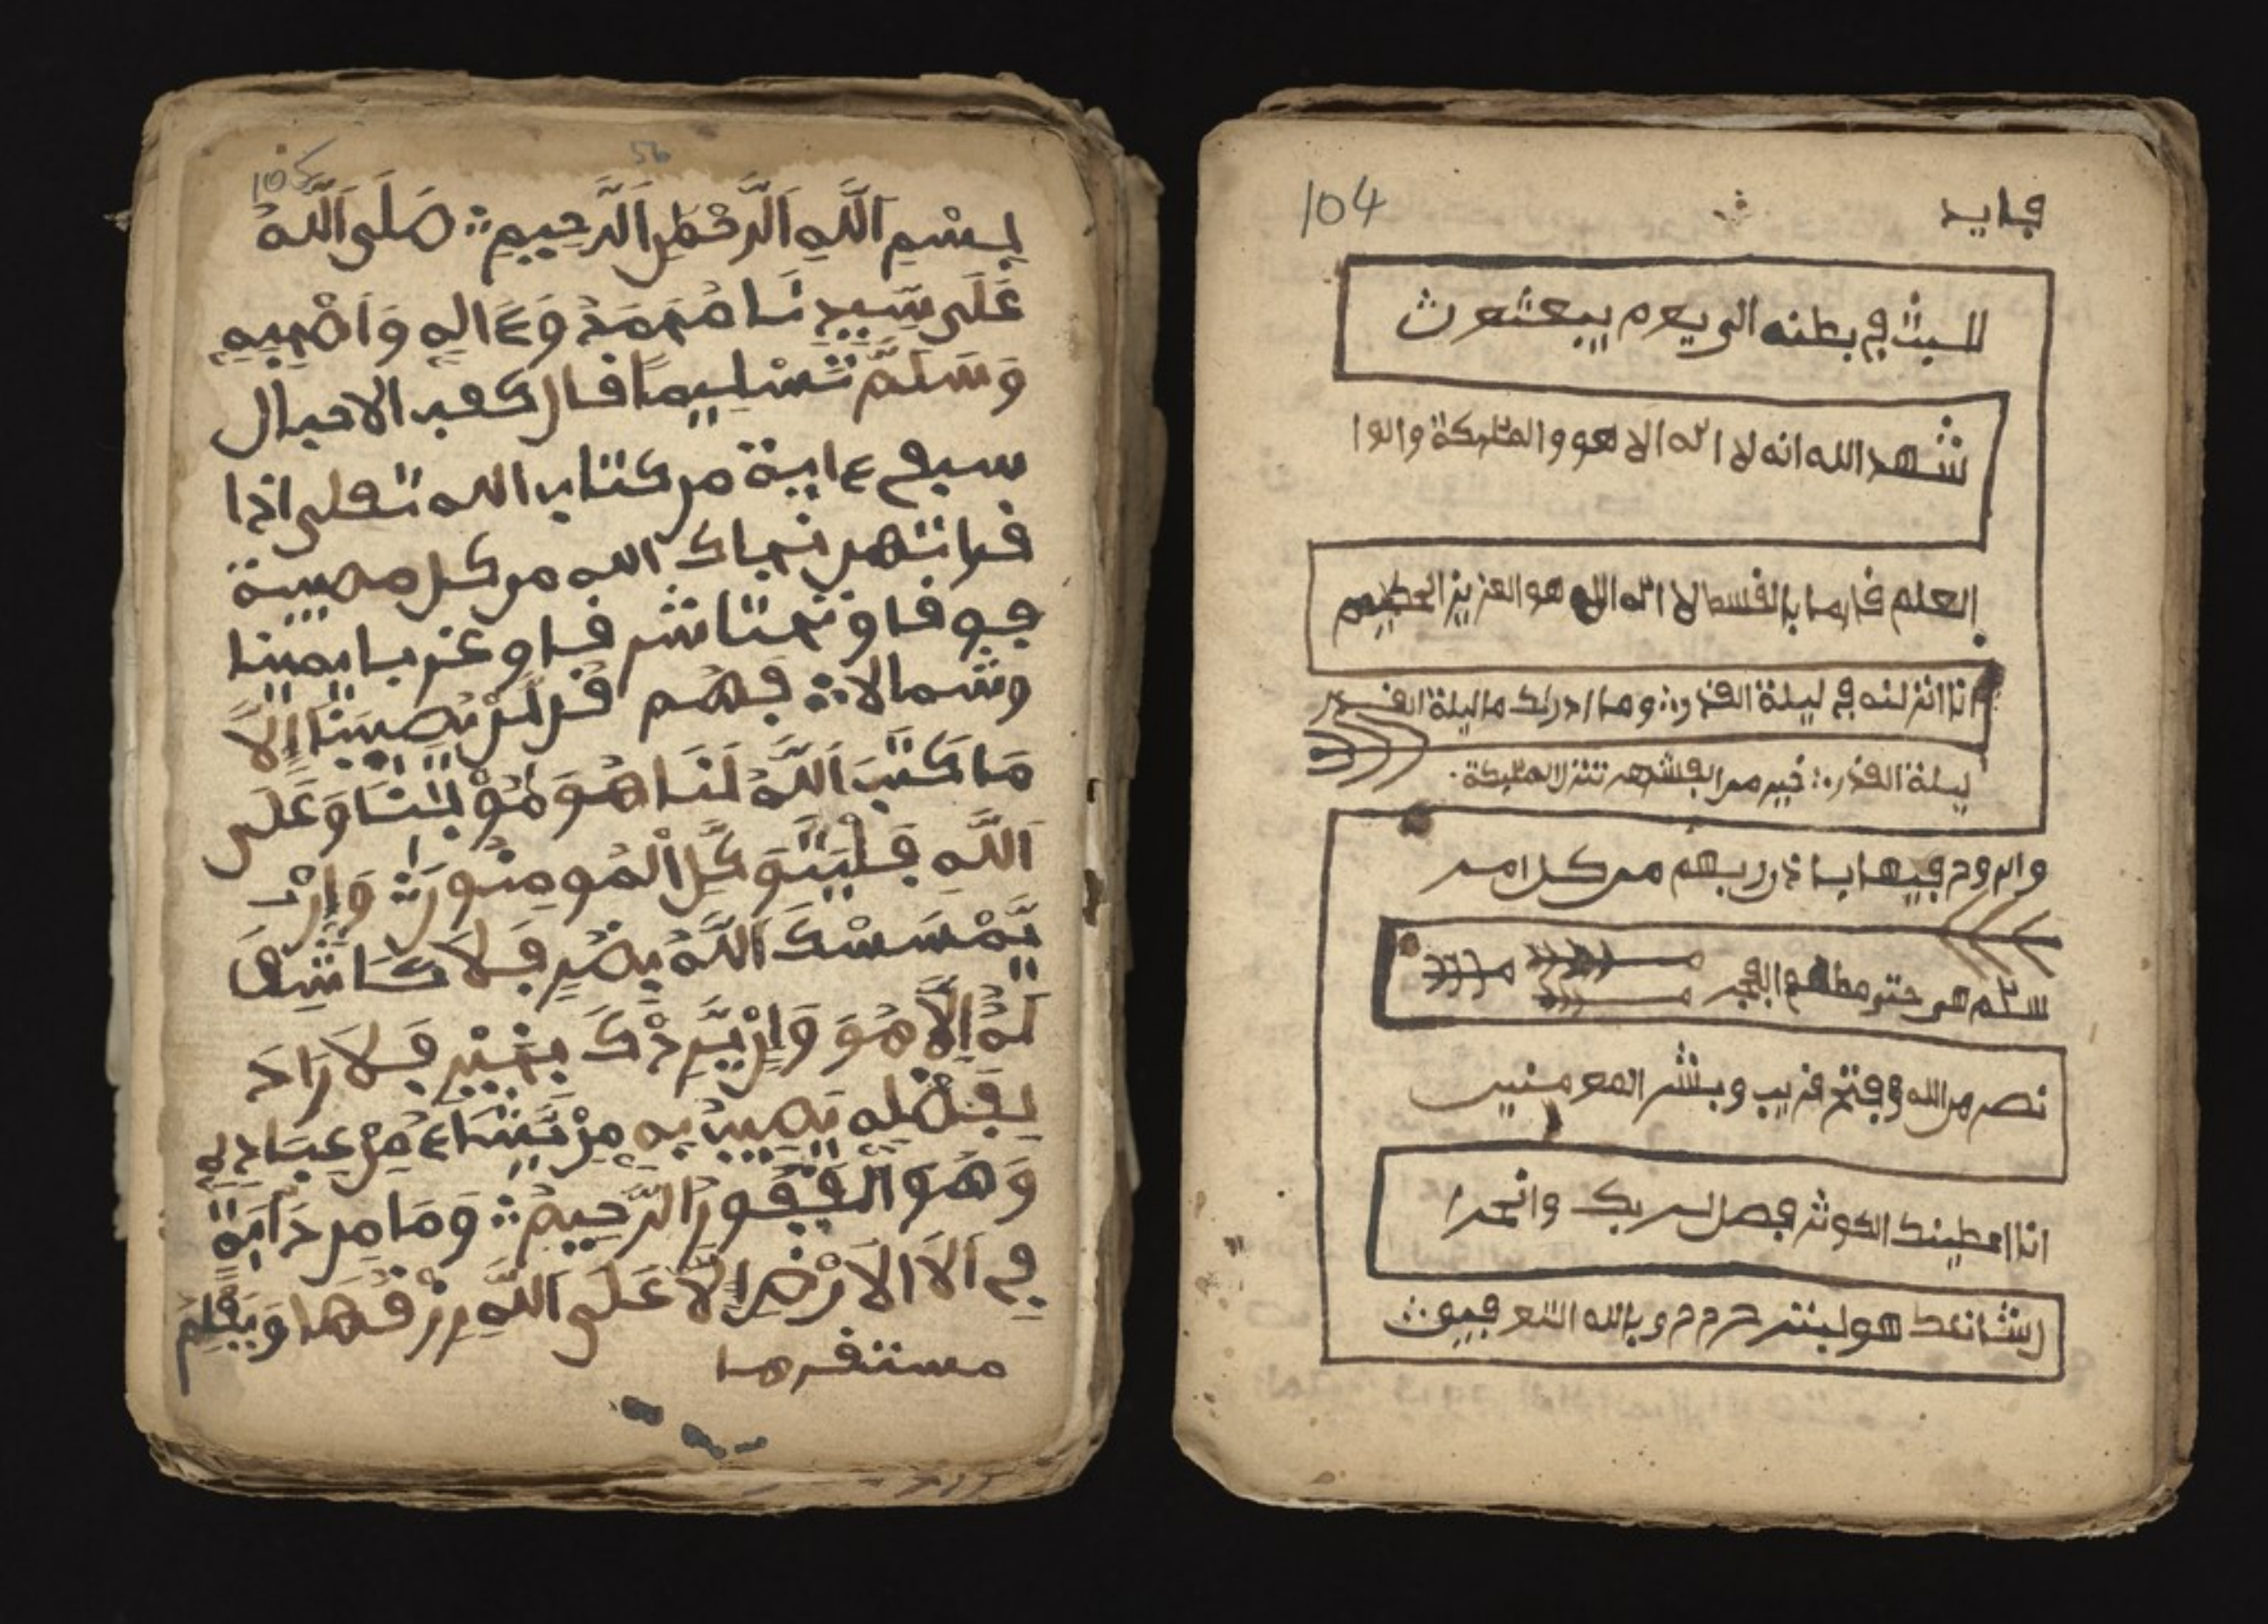 فايد
104
للبث في بطنه الى يوم يبعثون
شهد الله انه لا اله الا هو والملئكة واولوا
العلم قايما بالقسط لا اله الا هو العزيز الحكيم
انا انزلنه في ليلة القدر وما ادريك ما ليلة القدر
ليلة القدر خير من الف شهر تنزل الملئكة
والروح فيها باذن ربهم من كل امر
سلم هي حتى مطلع الفجر
نصر من الله وفتح قريب وبشر المومنين
انا اعطينك الكوثر فصل لربك وانحر ا
ن شانئك هو لبتر وبالله التوفيق
105
56
بِسْمِ اللَّهِ الرَّحْمَٰنِ الرَّحِيمِ صَلَى اللَّهُ
عَلَى سَيِّدِنَا مُحَمَدْ وَءَالِهِ وَاَصْحٰبِهِ
وَسَلَّمَ تَسْلِيماً قال كعب الاحبال
سبع ءاية من كتاب الله تعلى اذا
قراتهن نجاك الله من كل مصيبة
فوقا وتحتا شرقا وغربا يمينا
وشمالا فهم قُل لَّنْ يُصِيبَنَا إِلَّا
مَا كَتَبَ اللَّهُ لَنَا هُوَ مَوْلَٰينَا وَعَلَى
اللَّهِ فَلْيَتَوَكَّلِ الْمُومِنُونَ وَإِنْ
يَّمْسَسْكَ اللَّهُ بِضُرٍّ فَلَا كَاشِفَ
لَهُ إِلَّا هُوَ وَإِنْ يُّرِدْكَ بِخَيْرٍ فَلَا رَادَ
لِفَضْلِهِ يُصِيبُ بِهِ مِنْ يَّشَاءُ مِنْ عِبَادِهِ
وَهُوَ الْغَفُورُ الرَّحِيمُ وَمَا مِن دَابَةٍ
فِي اَلَا الاَرْضِ إِلَّا عَلَى اللَّهِ رِزْقُهَا وَيَعْلَمُ
مستقرها